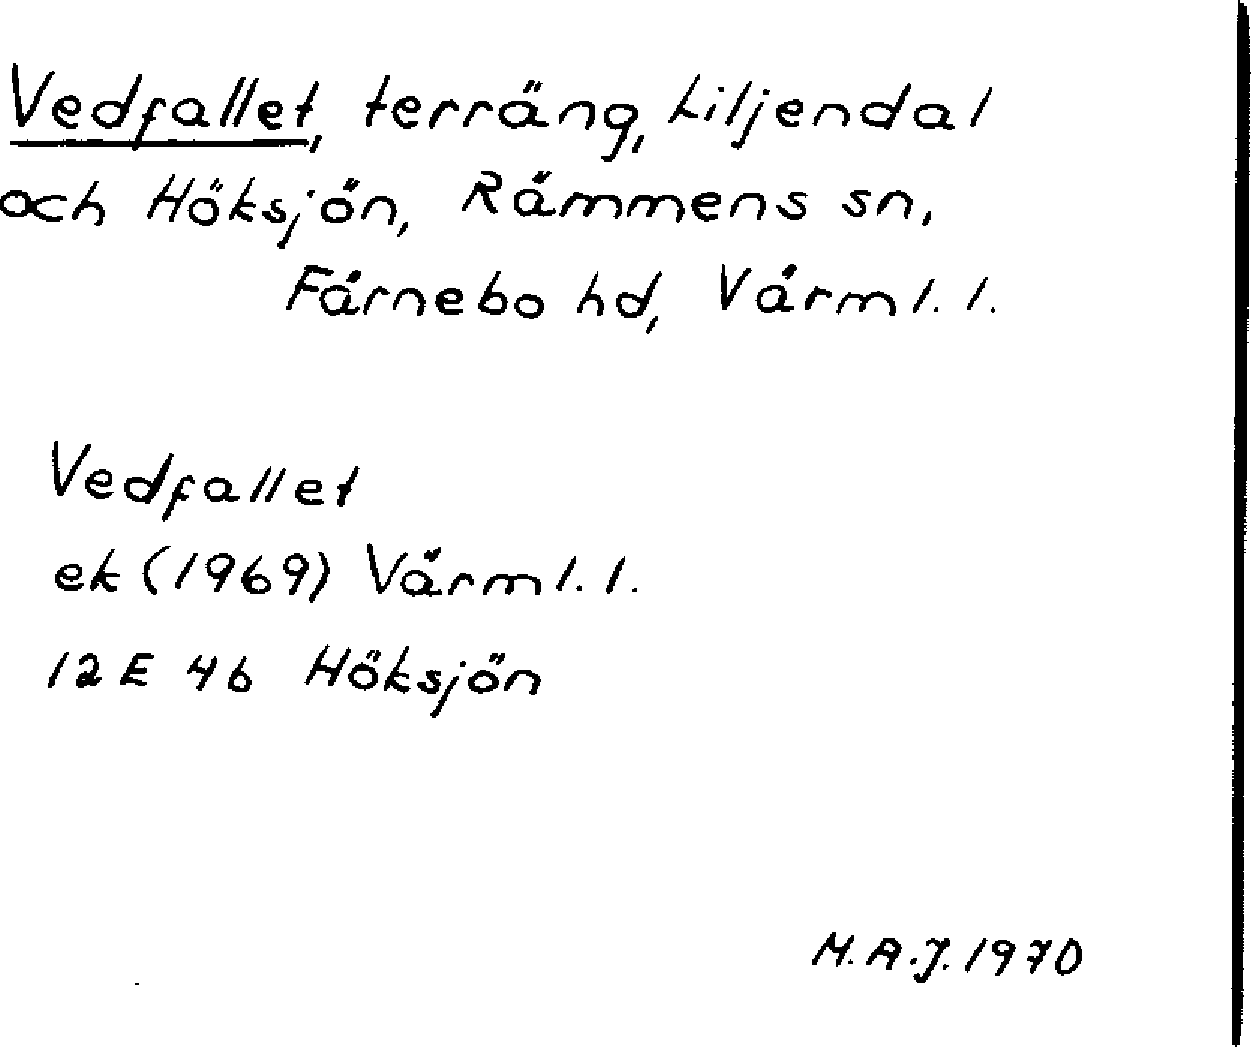 Vedfallet, terräng, Liljendal
och Höksjön, Rämmens sn,
Färnebo hd, Värml. l.
Vedfallet
ek (1969) Värml. l.
12 E 4b Höksjön
M.A.J. 1970